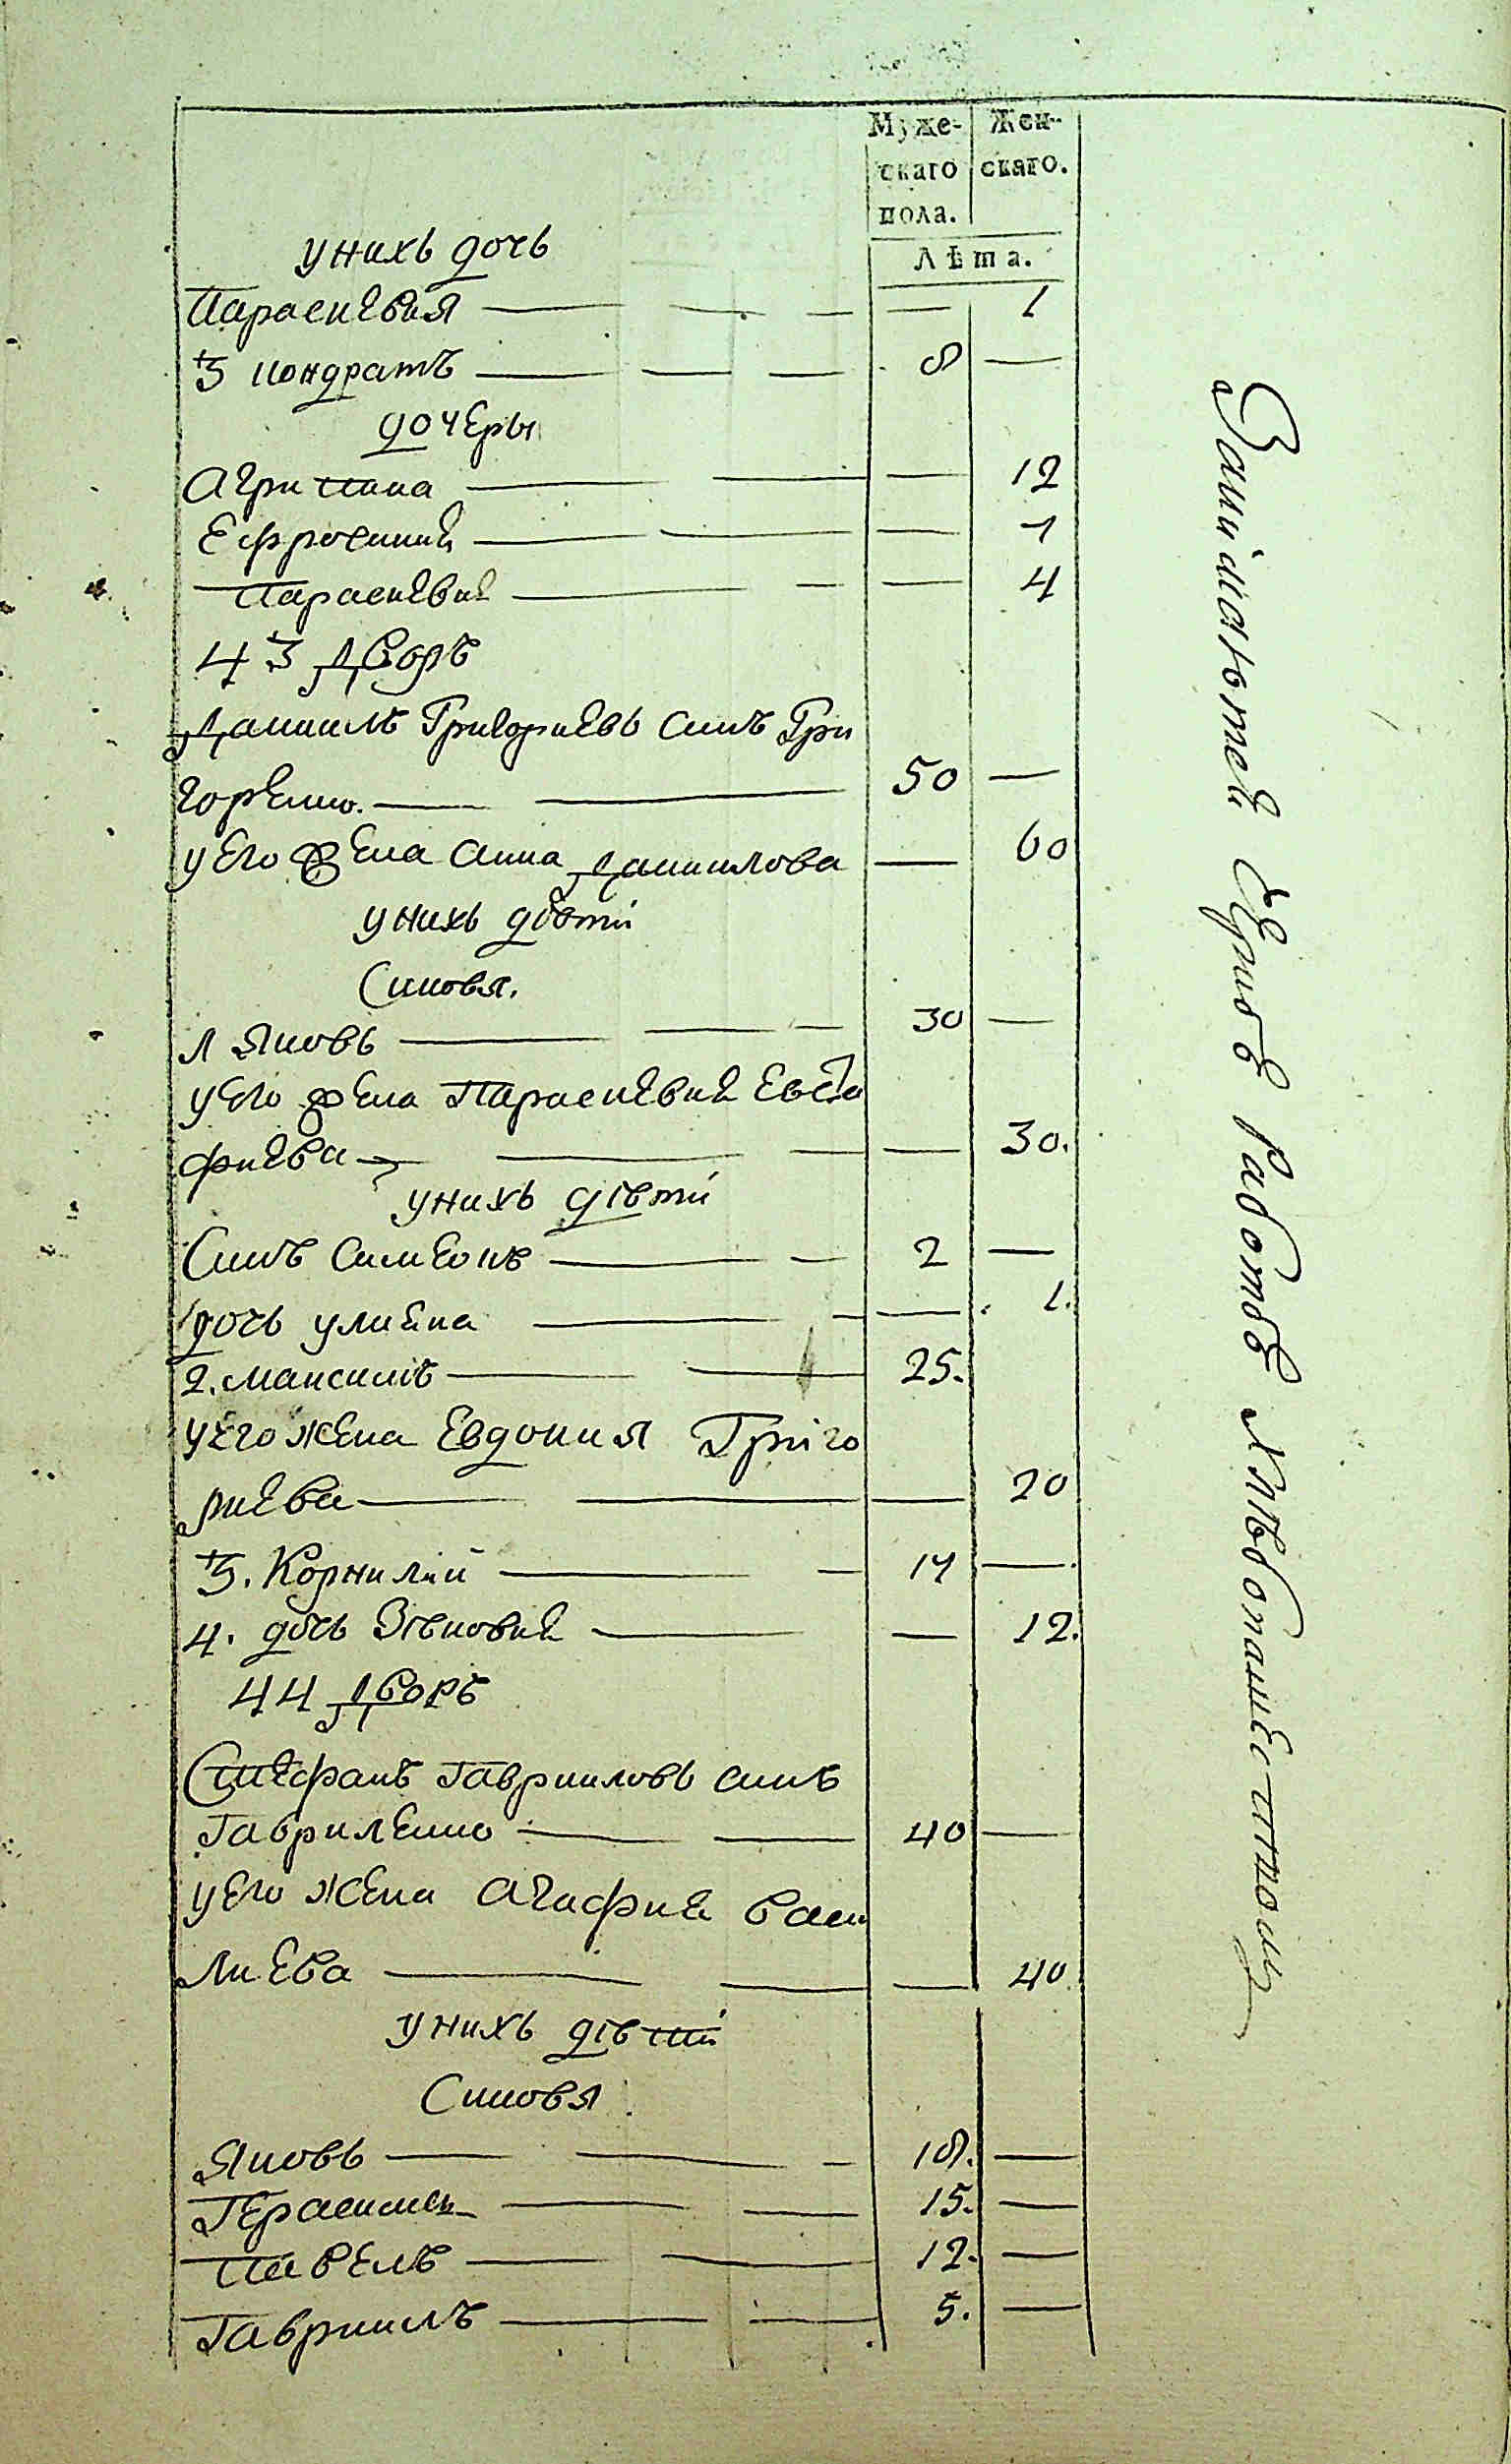 Муже- Жен-
скаго скаго.
пола.
Лѣта.
унихь дочь
Параскевия — — — — 1
3 Кондратъ — — — 8 —
дочеры
Агрипина — — — 12
Ефросиния — — — 7
Параскевия — — — 4
43 Дворъ
Даниилъ Григориевь синъ Гри
горенко. — — 50 —
у его жена Анна Даниилова — 60
унихь дѣти
Синовя.
1 Яковь — — — 30 —
у его жена Параскевия Евста
фиева — — — — 30.
унихь дѣти
Синъ Симеонъ — — 2 —
дочь улияна — — — 1.
2. Максимъ — — 25.
у его жена Евдокия Григо
риева — — — 20
3. Корнилий — — 14 —
4. дочь Зѣновия — — 12.
44 Дворъ
Стефанъ Гавриловь синъ
Гавриленко — — 40 —
у его жена Агафия Васи
лиева — — — 40
унихь дѣти
Синовя
Яковь — — — 18. —
Герасимъ — — 15. —
Павелъ — — 12. —
Гавриилъ — — 5. —
работѣ хлѣбопашест